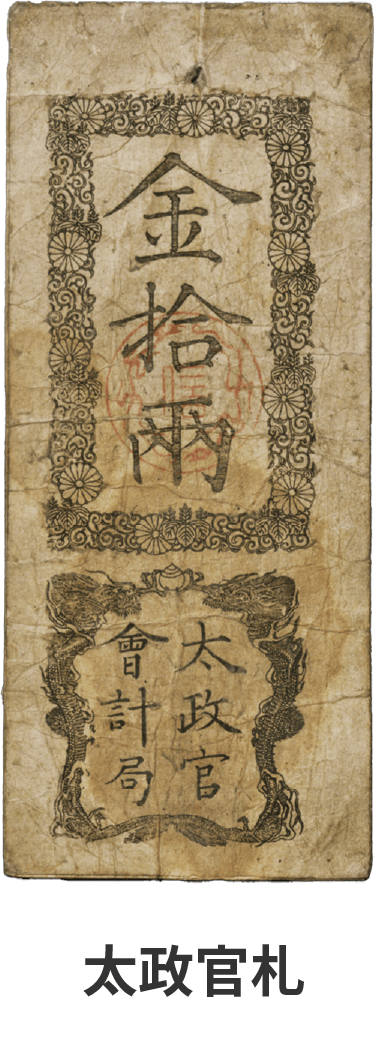 金拾兩
太政官
會計局
太政官札